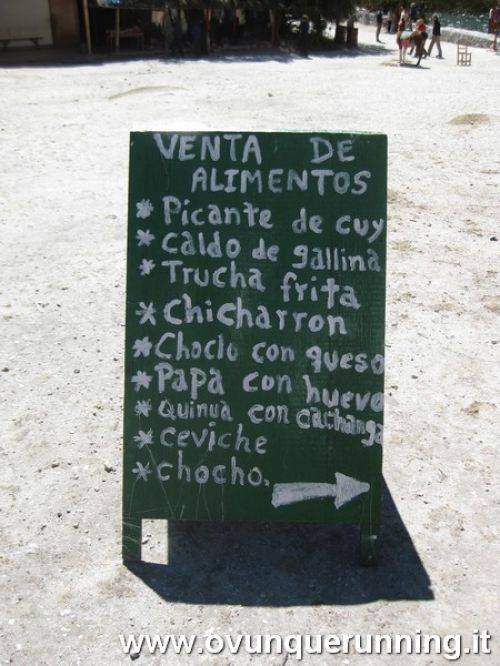 VENTA DE
ALIMENTOS
* Picante de cuy
* caldo de gallina
* Trucha frita
* Chicharron
* Choclo con queso
* Papa con huevo
* Quinua con cachanga
* ceviche
* chocho.
www.ovunquerunning.it